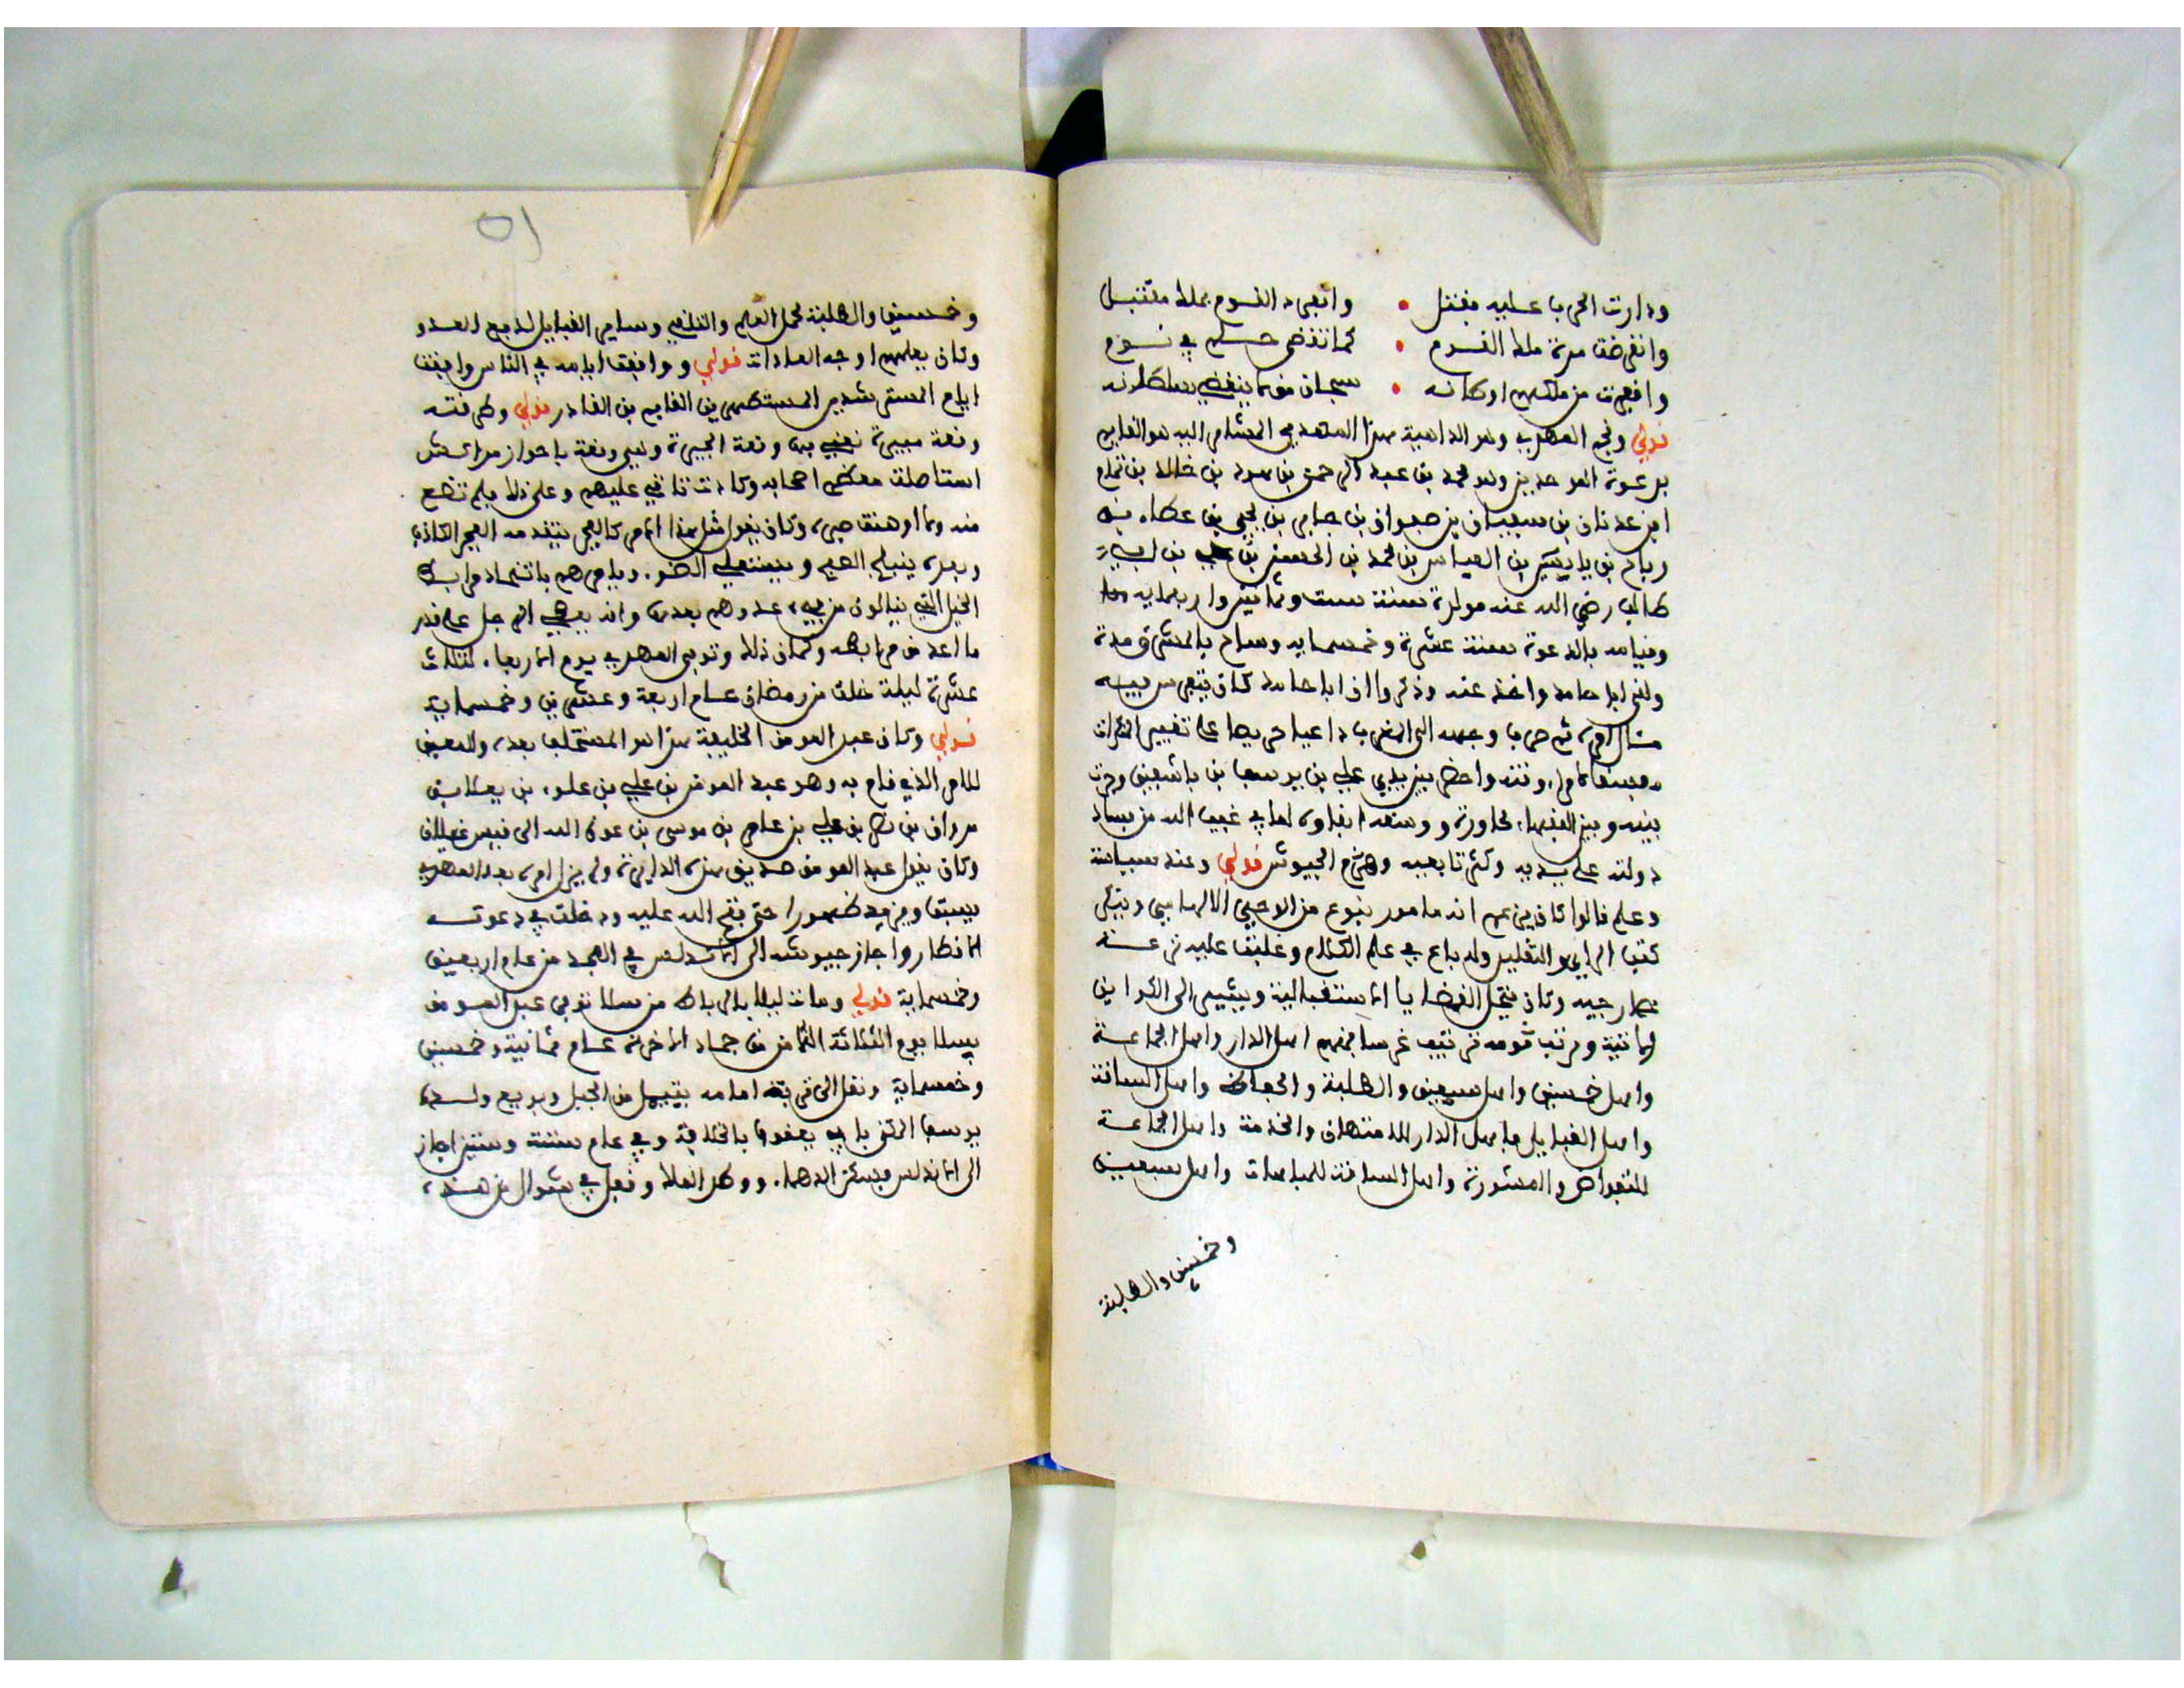 ودارت الحرب عليه فقتل • وانفرد القوم بملك مقتبل
وانقرضت مدة ملك القوم • كما تقضى حلم في نوم
وافقرت من ملكهم اوطانه • سبحان من لا ينقضي سلطانه
قولي ونجم المهدي وهو الداهية هذا المهدي المشار اليه هو القايم
بدعوة الموحدين وهو محمد بن عبد الرحمن بن هود بن خالد بن تمام
ابن عدنان بن سفيان بن صفوان بن جابر بن يحيى بن عطاء بن
رباح بن يسار بن العباس بن محمد بن الحسن بن علي بن ابي
طالب رضي الله عنه مولده سنة ست وثمانين واربعماية
وقيامه بالدعوة سنة عشرة وخمسماية وساح بالمشرق مدة
ولقي ابا حامد واخذ عنه وذكروا ان ابا حامد كان يتفرس فيه
ثم صرفا وجهه الى المغرب داعيا حريصا على تغيير المنكرات
واحضر بين يدي علي بن يوسف بن تاشفين وجرت
بينه وبين الفقهاء محاورة ووسعه ابقاؤه لما في غيب الله من فساد
دولته على يديه وكثر تابعيه وهزم الجيوش قولي وعنده سياسة
وعلم قالوا كان يزعم انه مامور بنوع من الوحي الالهامي وينكر
كتب الراي والتقليد وله باع في علم الكلام وغلبت عليه نزعة
خارجية وكان ينتحل القضايا الاستقبالية ويشير الى الكواين
الاتية ورتب قومه ترتيبا غريبا فمنهم اهل الدار واهل الجماعة
واهل خمسين واهل سبعين والطلبة والحفاظ واهل الساقة
واهل القبايل فاهل الدار للامتهان والخدمة واهل الجماعة
للتفاوض والمشورة واهل الساقة للمباهات واهل سبعين
وخمسين والطلبة
٥١
وخمسين والطلبة لحمل العلم والتلقي وساير القبايل لدفع العدو
وكان يعلمهم اوجه العادات قولي ووافقت ايامه في الناس وافقت
ايام المسترشد بن المستظهر بن القايم بن القادر قولي وكم فتنة
وقعة مبيرة نعني بها وقعة البحيرة وهي وقعة باحواز مراكش
استاصلت معظم اصحابه وكادت تاتي عليهم وعلى ذلك فلم تضع
منه ولا اوهنت صبره وكان يقول مثل هذا الامر كالفجر يتقدمه الفجر الكاذب
وبعده ينبلج الصبح ويستعلي الضوء ويامرهم باتخاذ مرابط
الخيل التي ينالون من فيء عدوهم بعدها وانه يعطي الرجل على قدر
ما اعد من مرابطه وكان ذلك وتوفي المهدي يوم الاربعاء لثلاث
عشرة ليلة خلت من رمضان عام اربعة وعشرين وخمسماية
قولي وكان عبد المومن الخليفة هذا هو المستخلف بعده والمعين
للامر الذي قام به وهو عبد المومن بن علي بن علوي بن يعلا بن
مروان بن نصر بن علي بن عامر بن موسى بن عون الله الى قيس غيلان
وكان يقول عبد المومن صديق هذه الدايرة ولم يزل امره بعد المهدي
يسبق ويزيد ظهورا حتى فتح الله عليه ودخلت في دعوته
الاقطار واجاز جيوشه الى الاندلس في المجد من عام اربعين
وخمسماية قولي ومات ليلا بالرباط من سلا توفي عبد المومن
بسلا يوم الثلاثة الثامن من جماد الاخرة عام ثمانية وخمسين
وخمسماية ونقل الى قرب امامه بتينمل من الجبل وبويع ولده
يوسف المكنى بابي يعقوب بالخلافة وفي عام ستة وستين اجاز
الى الاندلس فسكن الدهماء ووطد البلاد وقفل في شوال من هذه